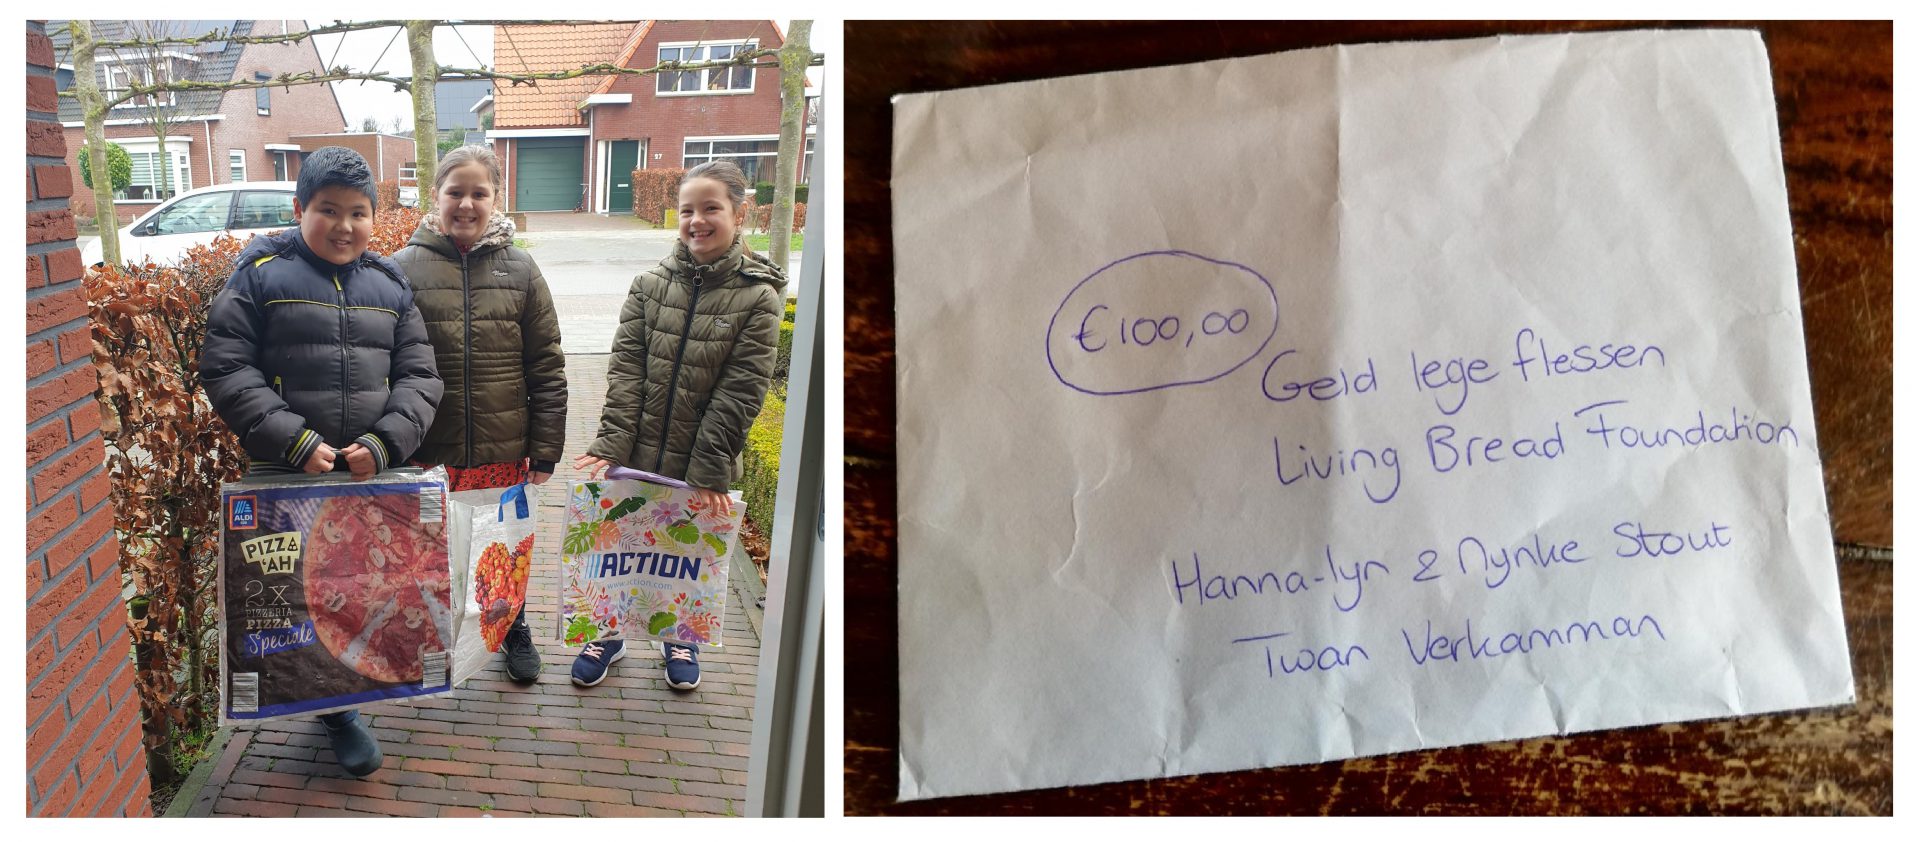 27
ALDI
PIZZ
'AH
2X
PIZZERIA
PIZZA
Speciale
ACTION
www.action.com
€100,00
Geld lege flessen
Living Bread Foundation
Hanna-lyn & Nynke Stout
Twan Verkamman